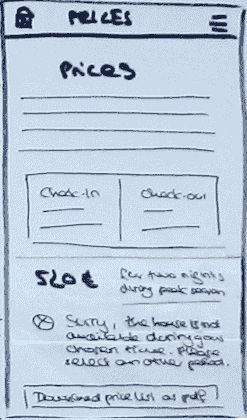 PRICES
Prices
Check-In
Check-out
520 €
for two nights
during peak season
Sorry, the house is not
available during your
chosen time. Please
select an other period.
Download price list as pdf